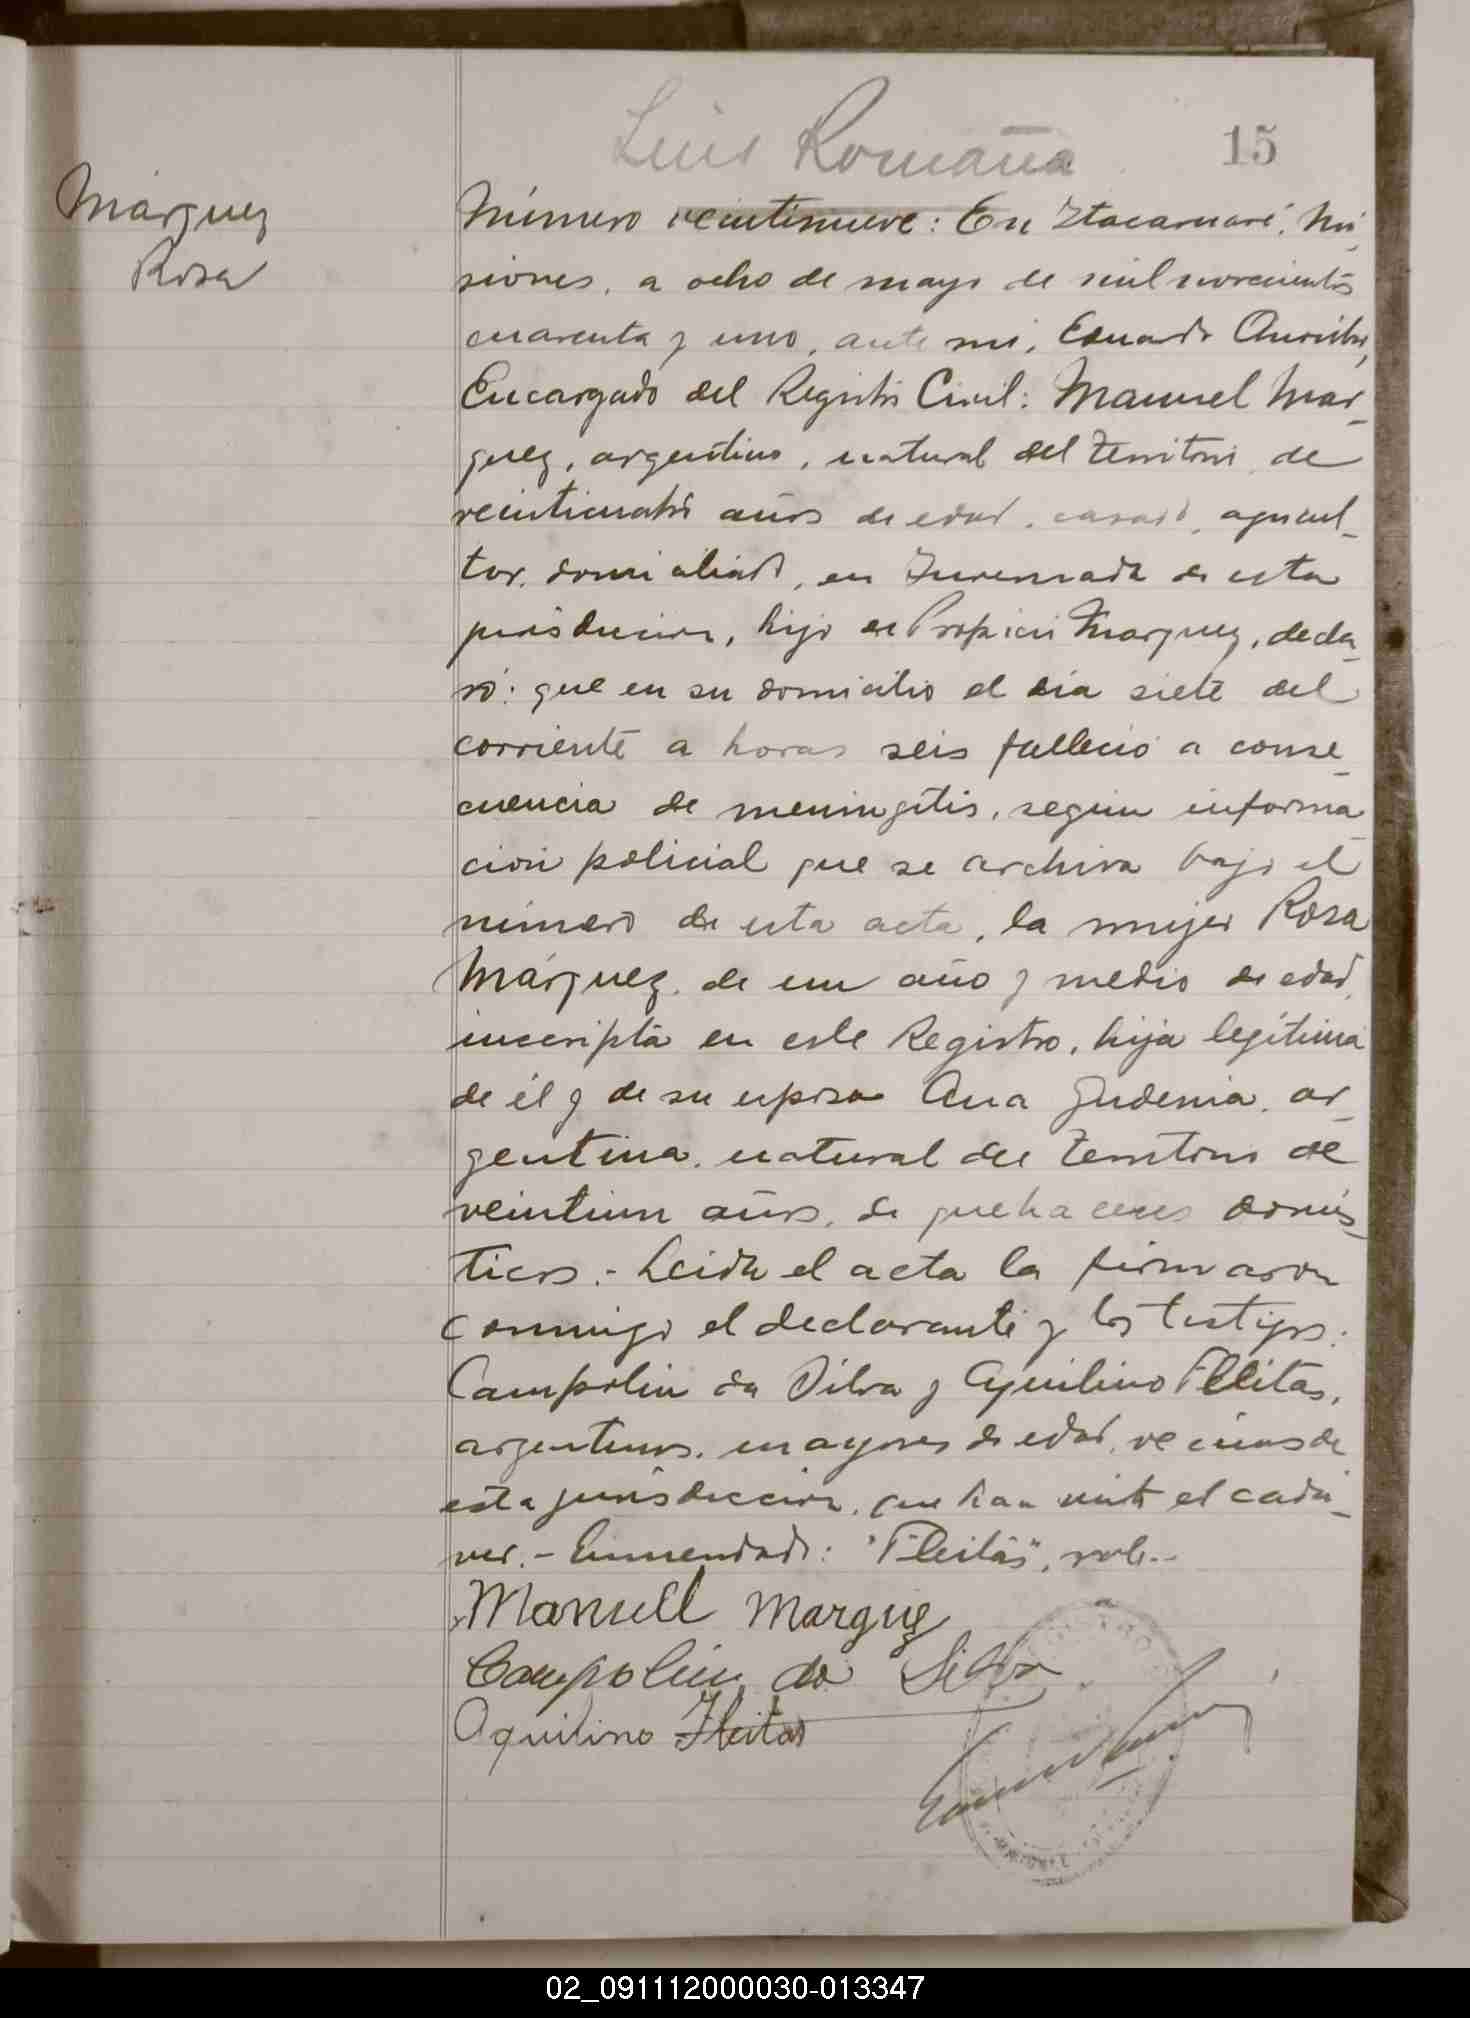 Luis Romaña
15
Márquez
Rosa
Número veintinueve: En Itacaruaré, Mi-
siones, a ocho de mayo de mil novecientos
cuarenta y uno, ante mi, Eduardo
Encargado del Registro Civil: Manuel Mar-
quez, argentino, natural del Territorio de
veinticuatro años de edad, casado, agricul-
tor, domiciliado, en de esta
jurisduccion, hijo de Propicio Marquez, decla-
ró: que en su domicilio el dia siete del
corriente a horas seis falleció a conse-
cuencia de meningitis, según informa-
ción policial que se archiva bajo el
número de esta acta, la mujer Rosa
Márquez, de un año y medio de edad,
inscripta en este Registro, hija legítima
de él y de su esposa Ana, ar-
gentina, natural del Territorio de
veintiun años, de quehaceres domés-
ticos.- Leida el acta la firmaron
conmigo el declarante y los testigos:
Campolin da Silva y Aquilino Fleitas,
argentinos, mayores de edad, vecinos de
esta jurisdiccion, que han visto el cadá-
ver.- Enmendado: "Fleitas", vale.-
Manuell Marquez
Campolin da Silva
Aquilino Fleitas
02_091112000030-013347